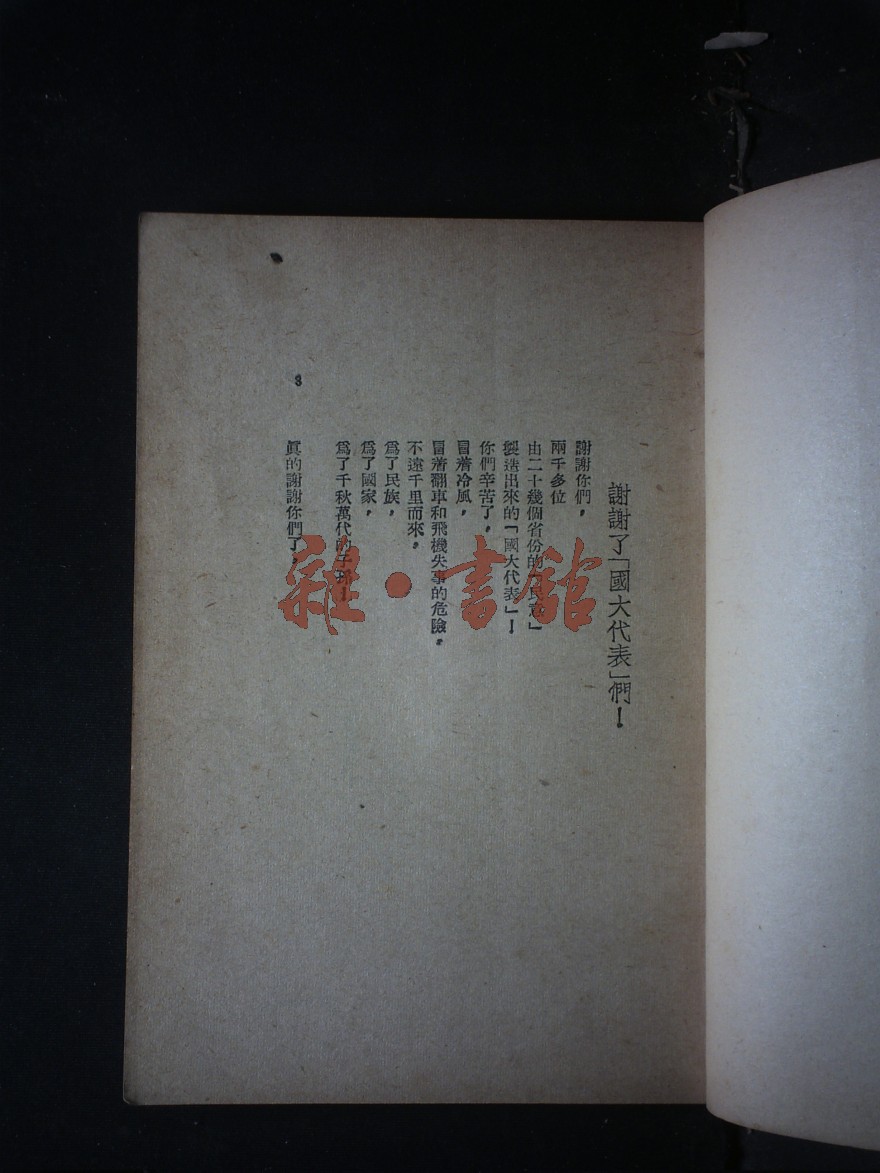 謝謝了「國大代表」們！
謝謝你們，
兩千多位
由二十幾個省份的「民意」
製造出來的「國大代表」！
你們辛苦了，
冒着冷風，
冒着翻車和飛機失事的危險，
不遠千里而來，
爲了民族，
爲了國家，
爲了千秋萬代的子孫！
眞的謝謝你們了，
3
雜·書館